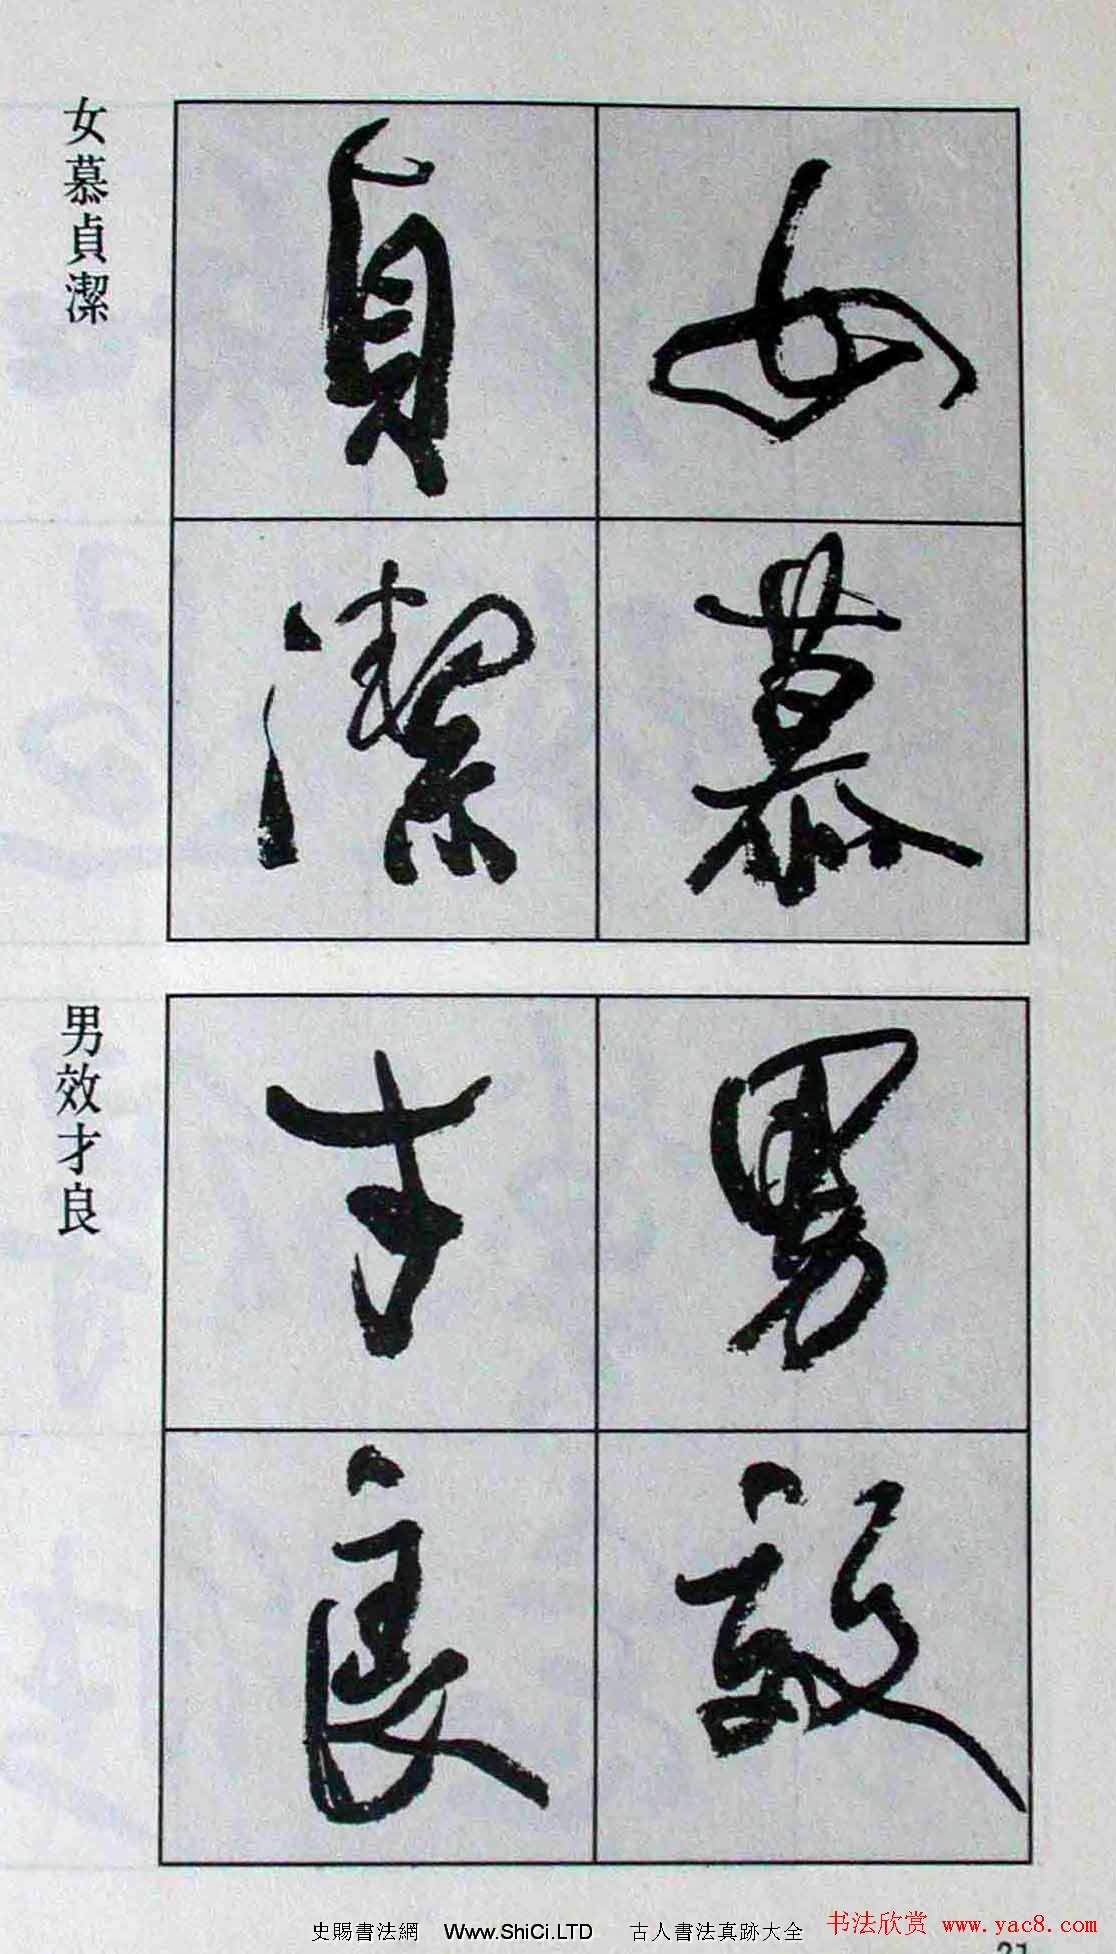 女慕
貞潔
女慕貞潔
男效
才良
男效才良
史賜書法網 Www.ShiCi.LTD 古人書法真跡大全
书法欣赏 www.yac8.com
21